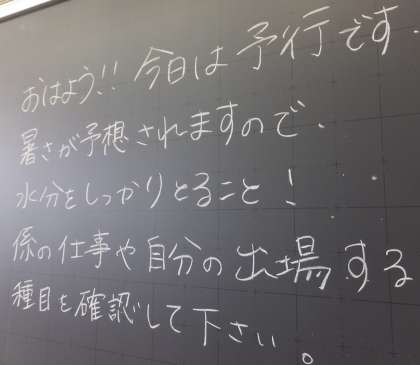 おはよう!! 今日は予行です.
暑さが予想されますので.
水分をしっかりとること!
係の仕事や自分の出場する
種目を確認して下さい。